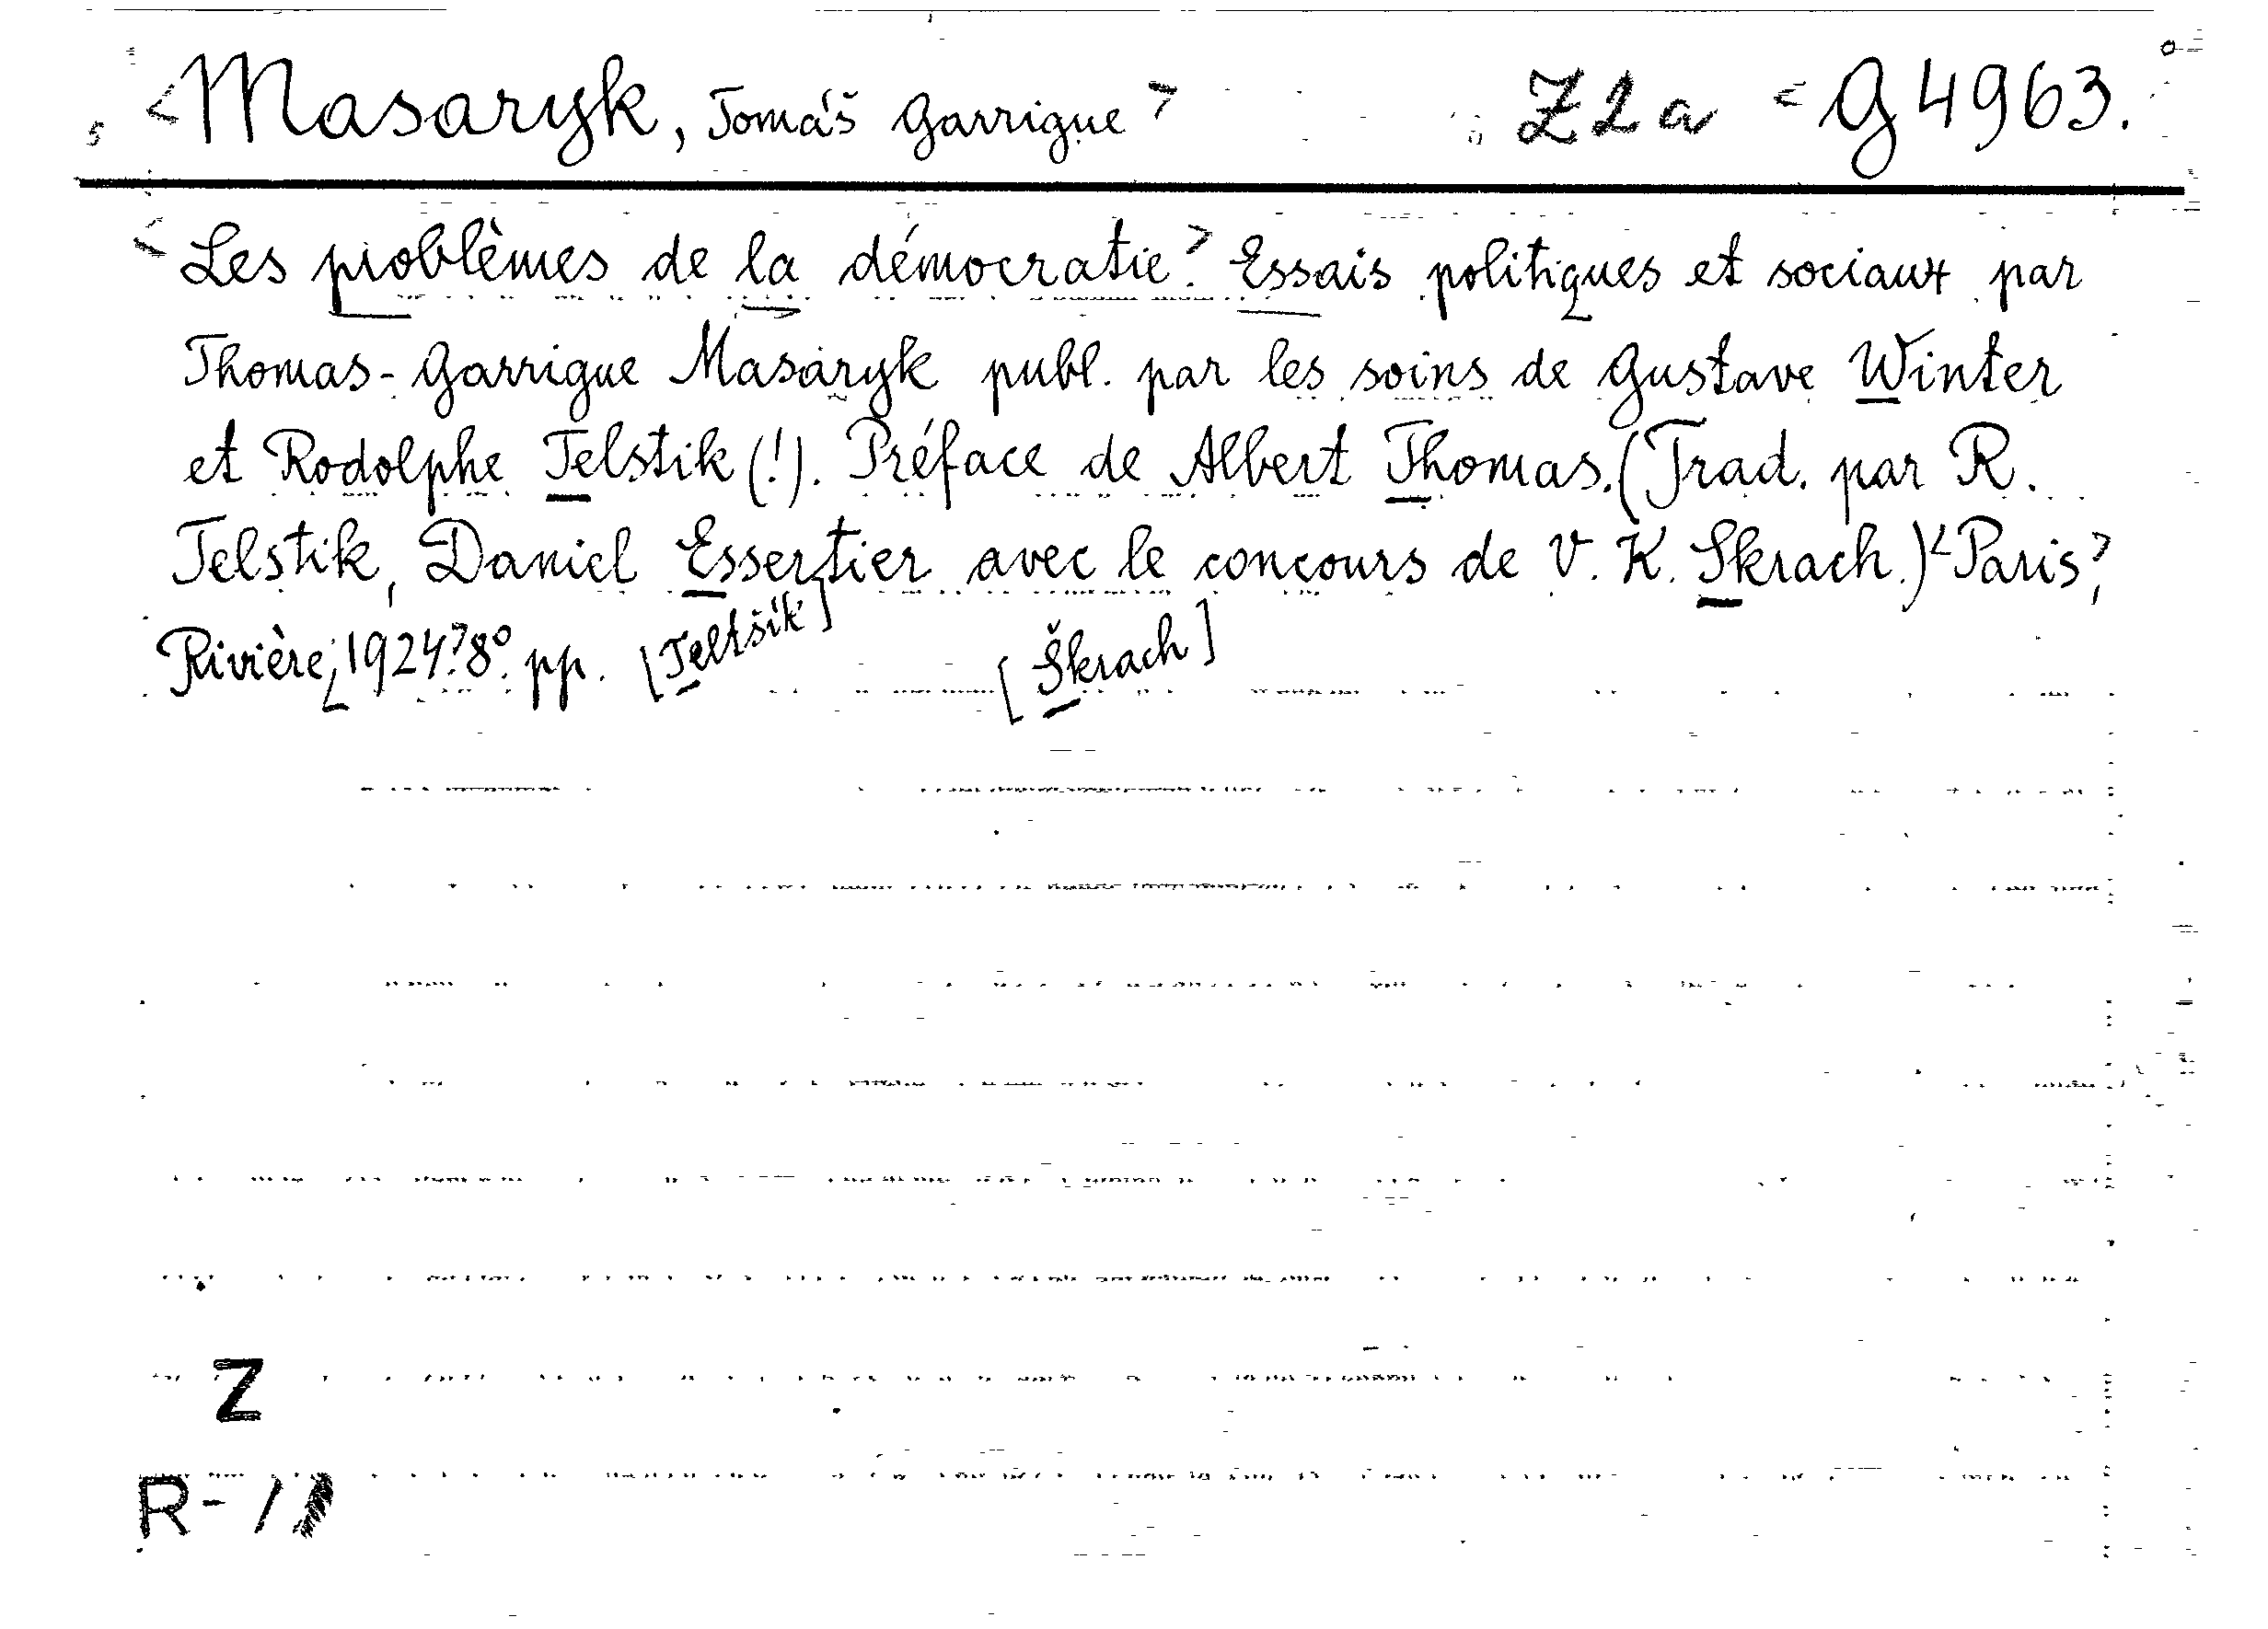 <Masaryk, Tomáš Garrigue> Z2a <G 4963.
<Les problèmes de la démocratie.> Essais politiques et sociaux par
Thomas-Garrigue Masaryk publ. par les soins de Gustave Winter
et Rodolphe Telstik (!). Préface de Albert Thomas. (Trad. par R.
Telstik, Daniel Essertier avec le concours de V. K. Skrach.) <Paris>,
Rivière, <1924>. 8°. pp. [Teltšík] [Škrach]
Z
R-1